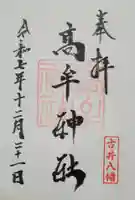 奉拝
高牟神社
令和七年十二月二十一日
古井八幡